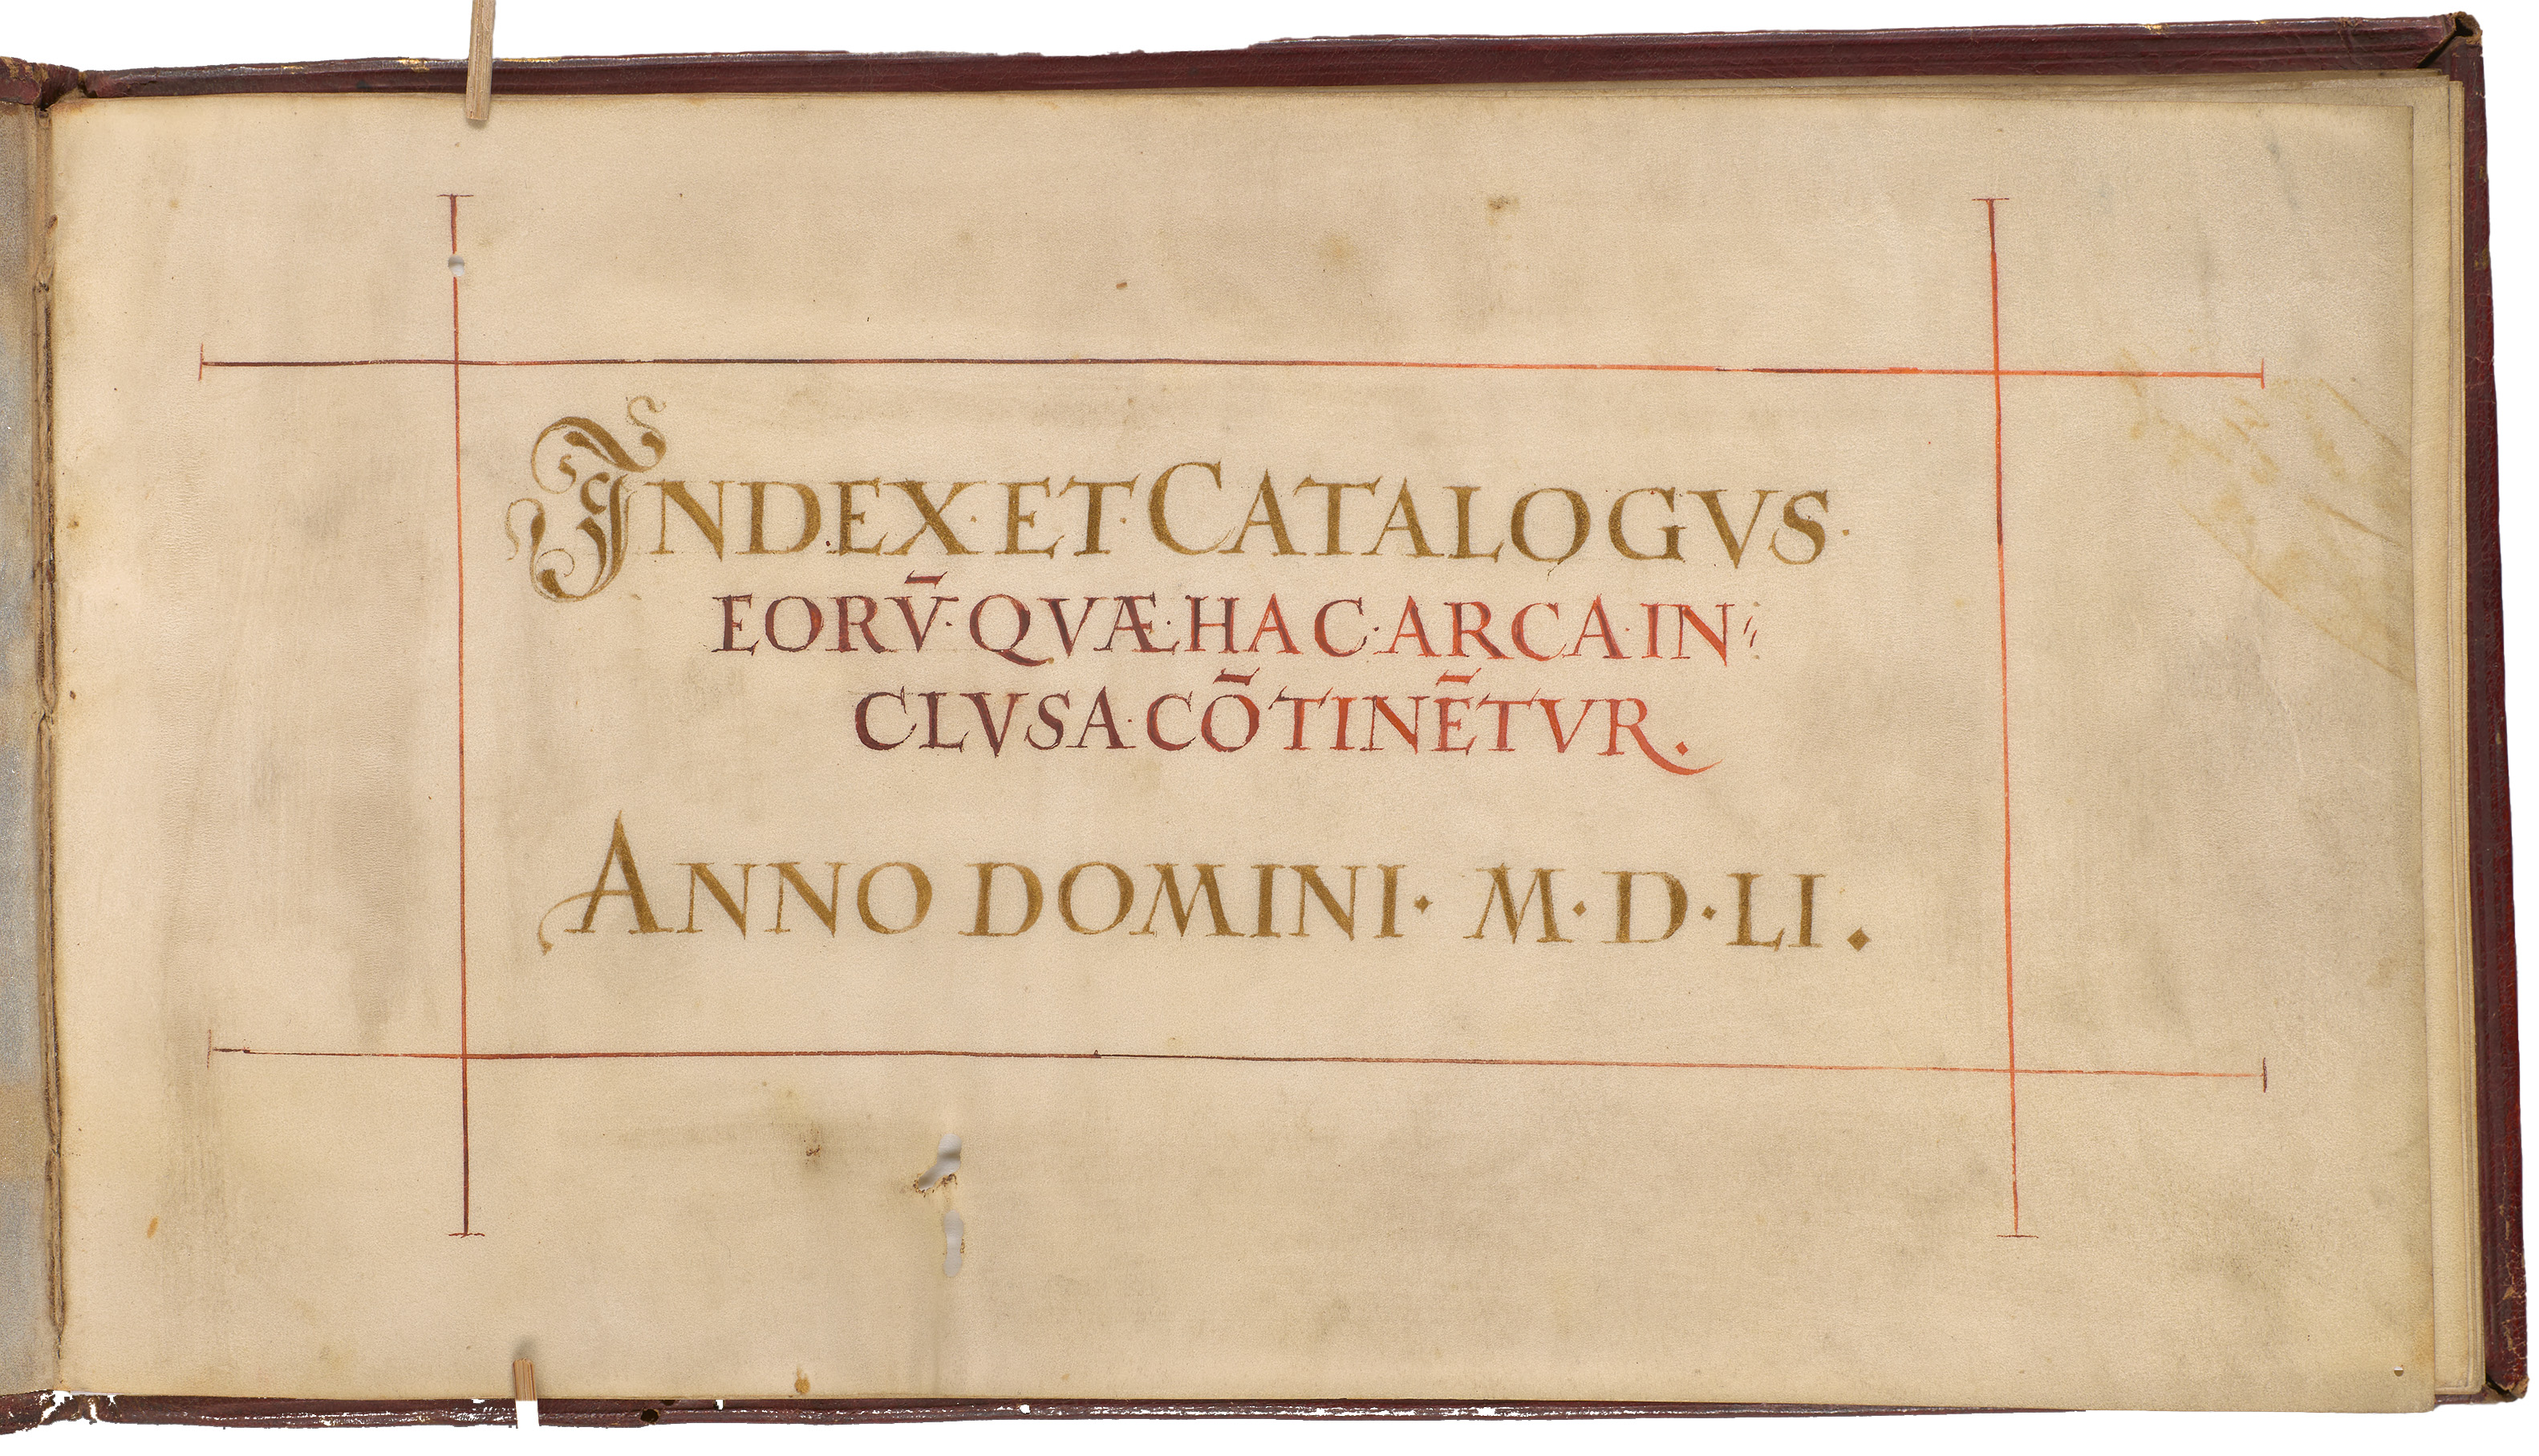 INDEX·ET·CATALOGVS·
EORṼ·QVÆ·HAC·ARCA·IN⸗
CLVSA·CÕTINẼTVR.
ANNO DOMINI· M·D·LI.